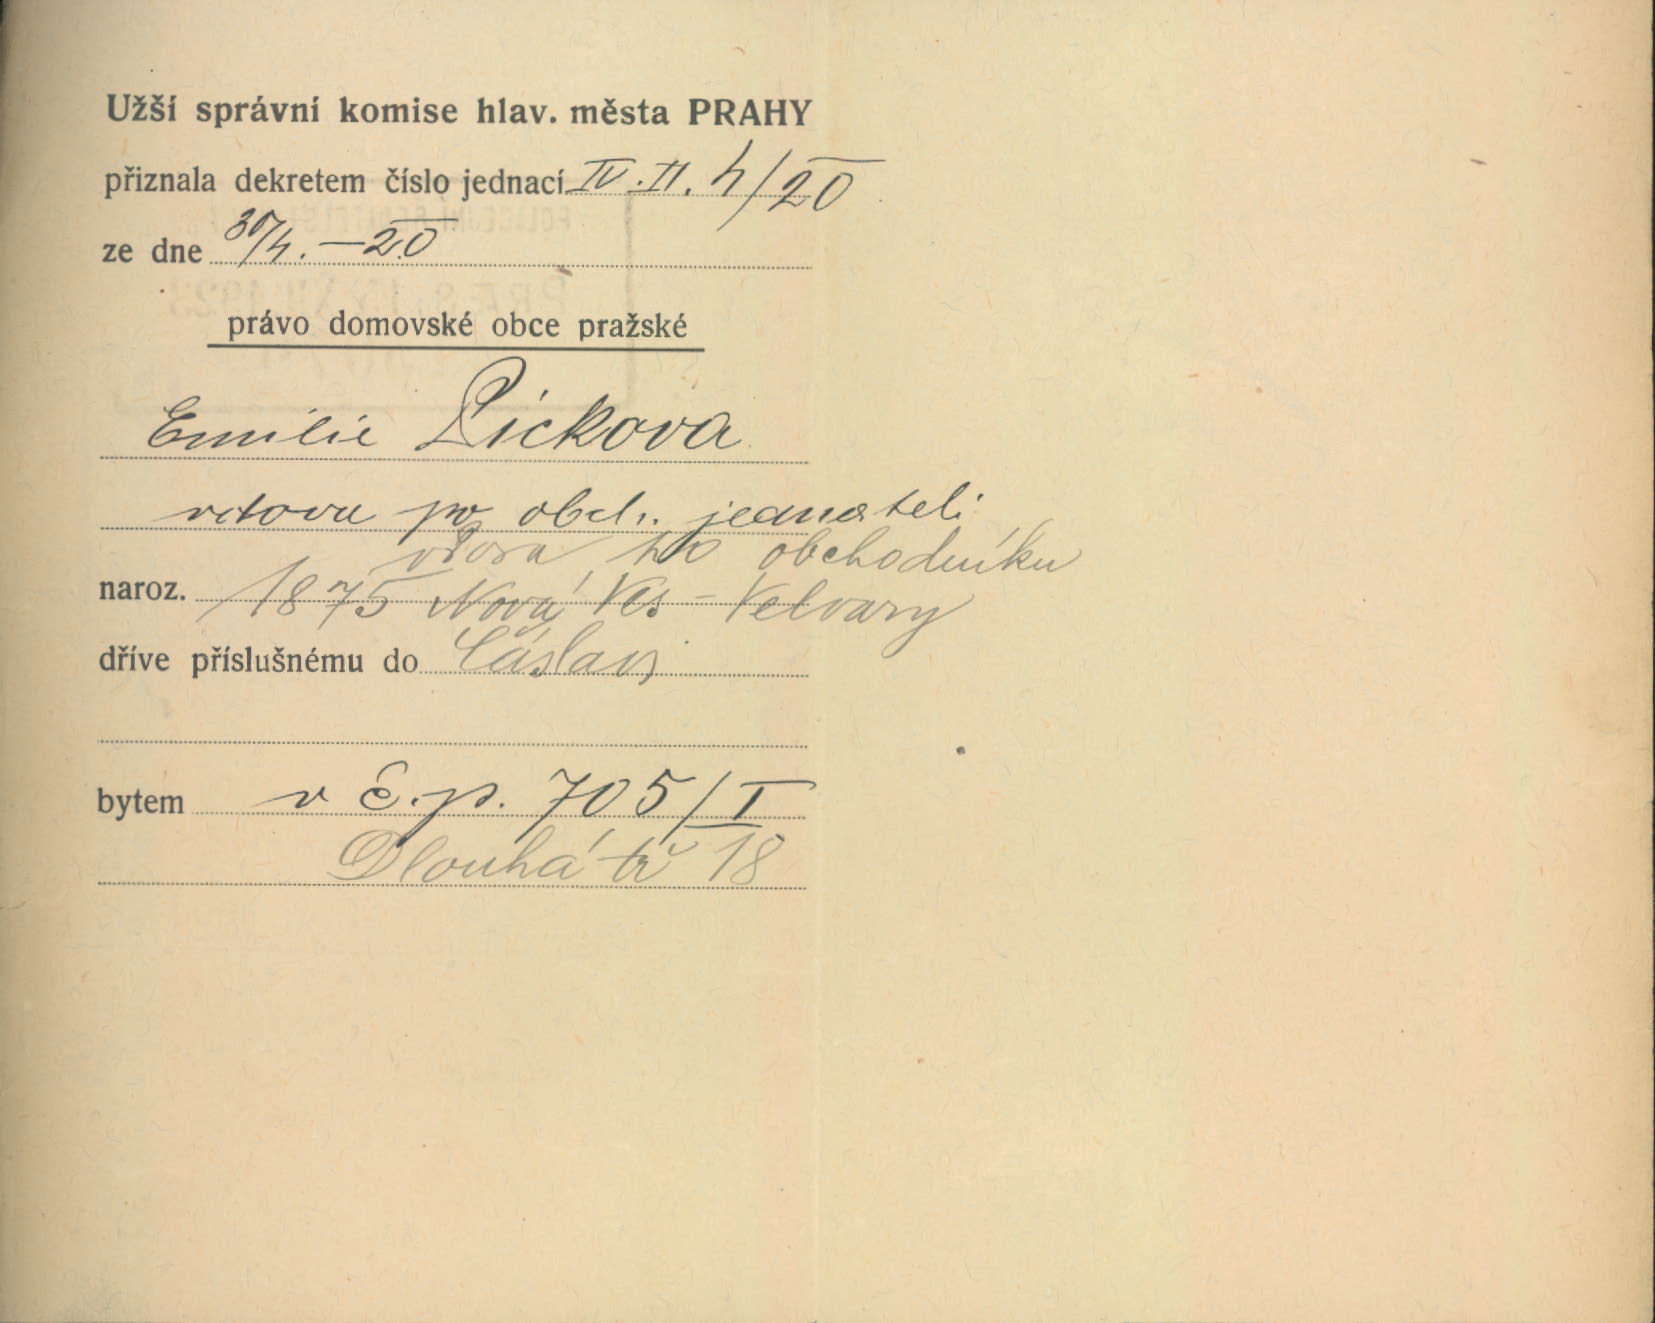 Užší správní komise hlav. města PRAHY
přiznala dekretem číslo jednací IV. II. 4/20
ze dne 30/4. – 20
právo domovské obce pražské
Emilie Pickova
vdova po obch. jednateli
vdova po obchodníku
naroz. 1875 Nová Ves – Velvary
dříve příslušnému do Čáslavi
bytem v č.p. 705/I
Dlouhá tř 18